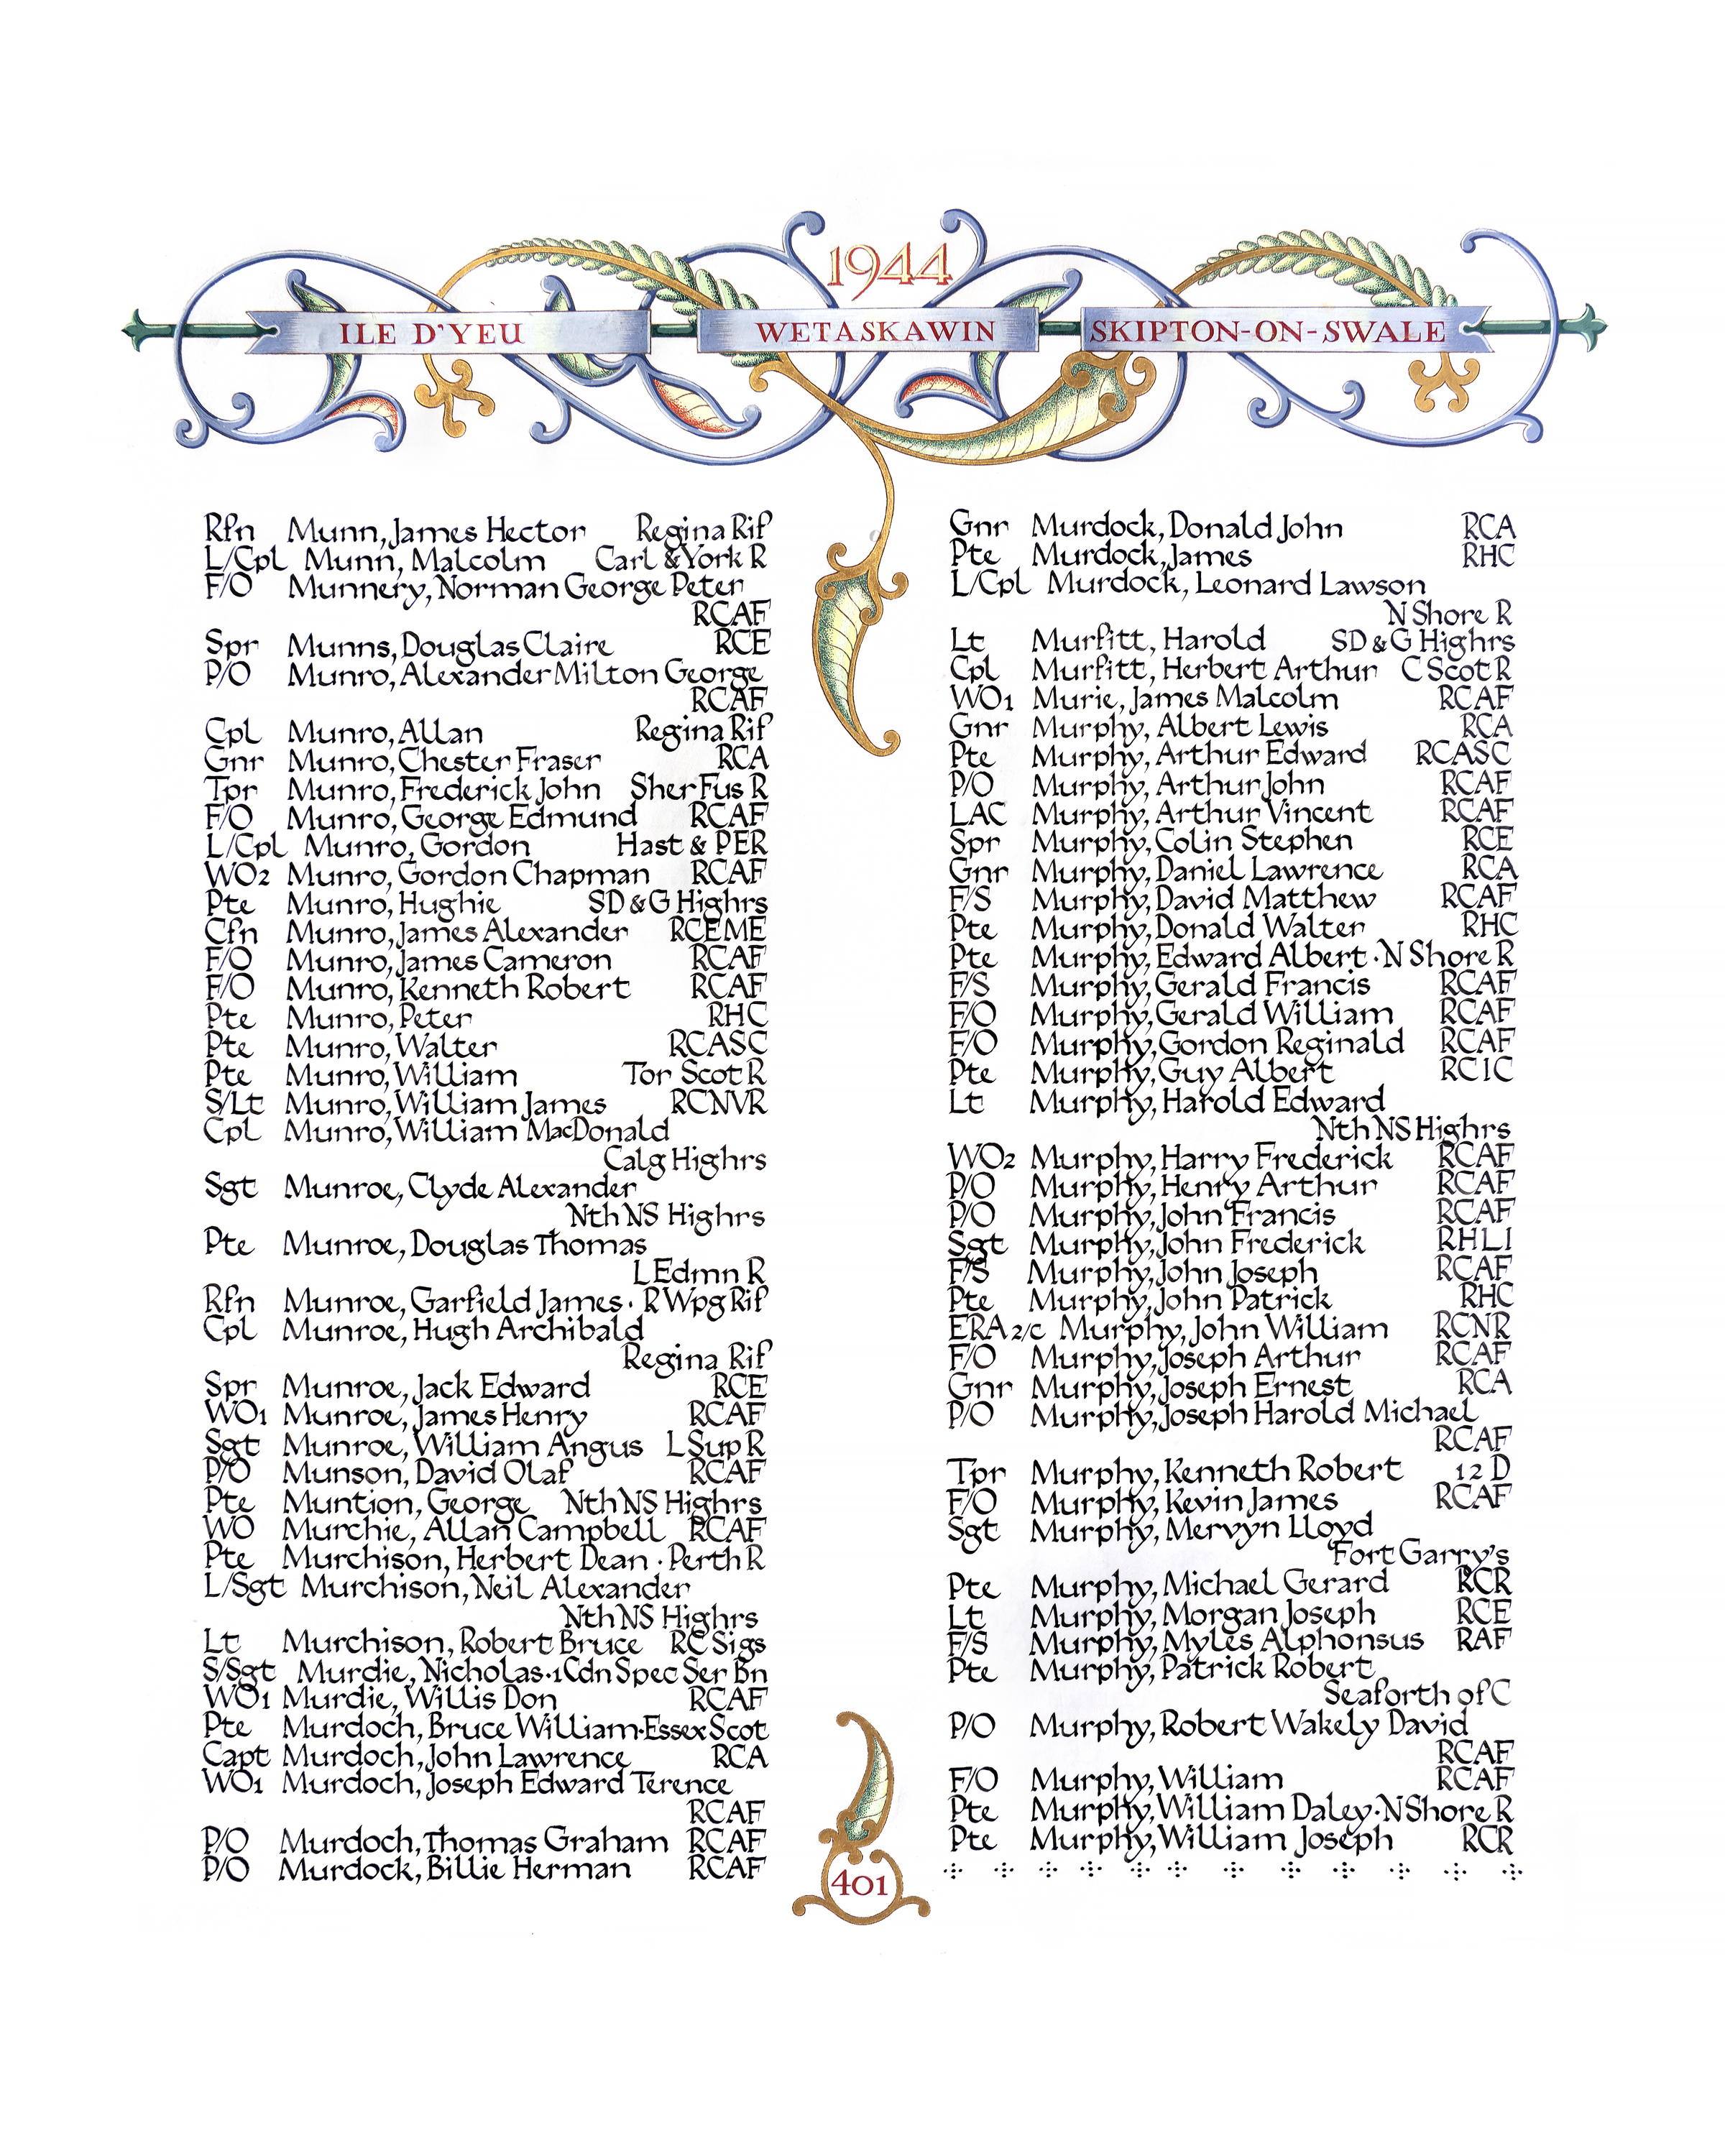 1944
ILE D'YEU
WETASKAWIN
SKIPTON-ON-SWALE
Rfn Munn, James Hector Regina Rif
L/Cpl Munn, Malcolm Carl & York R
F/O Munnery, Norman George Peter
RCAF
Spr Munns, Douglas Claire RCE
P/O Munro, Alexander Milton George
RCAF
Cpl Munro, Allan Regina Rif
Gnr Munro, Chester Fraser RCA
Tpr Munro, Frederick John Sher Fus R
F/O Munro, George Edmund RCAF
L/Cpl Munro, Gordon Hast & PER
WO2 Munro, Gordon Chapman RCAF
Pte Munro, Hughie SD & G Highrs
Cfn Munro, James Alexander RCEME
F/O Munro, James Cameron RCAF
F/O Munro, Kenneth Robert RCAF
Pte Munro, Peter RHC
Pte Munro, Walter RCASC
Pte Munro, William Tor Scot R
S/Lt Munro, William James RCNVR
Cpl Munro, William MacDonald
Calg Highrs
Sgt Munroe, Clyde Alexander
Nth NS Highrs
Pte Munroe, Douglas Thomas
L Edmn R
Rfn Munroe, Garfield James · R Wpg Rif
Cpl Munroe, Hugh Archibald
Regina Rif
Spr Munroe, Jack Edward RCE
WO1 Munroe, James Henry RCAF
Sgt Munroe, William Angus L Sup R
P/O Munson, David Olaf RCAF
Pte Muntion, George Nth NS Highrs
WO Murchie, Allan Campbell RCAF
Pte Murchison, Herbert Dean · Perth R
L/Sgt Murchison, Neil Alexander
Nth NS Highrs
Lt Murchison, Robert Bruce RC Sigs
S/Sgt Murdie, Nicholas · 1 Cdn Spec Ser Bn
WO1 Murdie, Willis Don RCAF
Pte Murdoch, Bruce William · Essex Scot
Capt Murdoch, John Lawrence RCA
WO1 Murdoch, Joseph Edward Terence
RCAF
P/O Murdoch, Thomas Graham RCAF
P/O Murdock, Billie Herman RCAF
Gnr Murdock, Donald John RCA
Pte Murdock, James RHC
L/Cpl Murdock, Leonard Lawson
N Shore R
Lt Murfitt, Harold SD & G Highrs
Cpl Murfitt, Herbert Arthur C Scot R
WO1 Murie, James Malcolm RCAF
Gnr Murphy, Albert Lewis RCA
Pte Murphy, Arthur Edward RCASC
P/O Murphy, Arthur John RCAF
LAC Murphy, Arthur Vincent RCAF
Spr Murphy, Colin Stephen RCE
Gnr Murphy, Daniel Lawrence RCA
F/S Murphy, David Matthew RCAF
Pte Murphy, Donald Walter RHC
Pte Murphy, Edward Albert · N Shore R
F/S Murphy, Gerald Francis RCAF
F/O Murphy, Gerald William RCAF
F/O Murphy, Gordon Reginald RCAF
Pte Murphy, Guy Albert RCIC
Lt Murphy, Harold Edward
Nth NS Highrs
WO2 Murphy, Harry Frederick RCAF
P/O Murphy, Henry Arthur RCAF
P/O Murphy, John Francis RCAF
Sgt Murphy, John Frederick RHLI
F/S Murphy, John Joseph RCAF
Pte Murphy, John Patrick RHC
ERA 2/c Murphy, John William RCNR
F/O Murphy, Joseph Arthur RCAF
Gnr Murphy, Joseph Ernest RCA
P/O Murphy, Joseph Harold Michael
RCAF
Tpr Murphy, Kenneth Robert 12 D
F/O Murphy, Kevin James RCAF
Sgt Murphy, Mervyn Lloyd
Fort Garry's
Pte Murphy, Michael Gerard RCR
Lt Murphy, Morgan Joseph RCE
F/S Murphy, Myles Alphonsus RAF
Pte Murphy, Patrick Robert
Seaforth of C
P/O Murphy, Robert Wakely David
RCAF
F/O Murphy, William RCAF
Pte Murphy, William Daley · N Shore R
Pte Murphy, William Joseph RCR
401